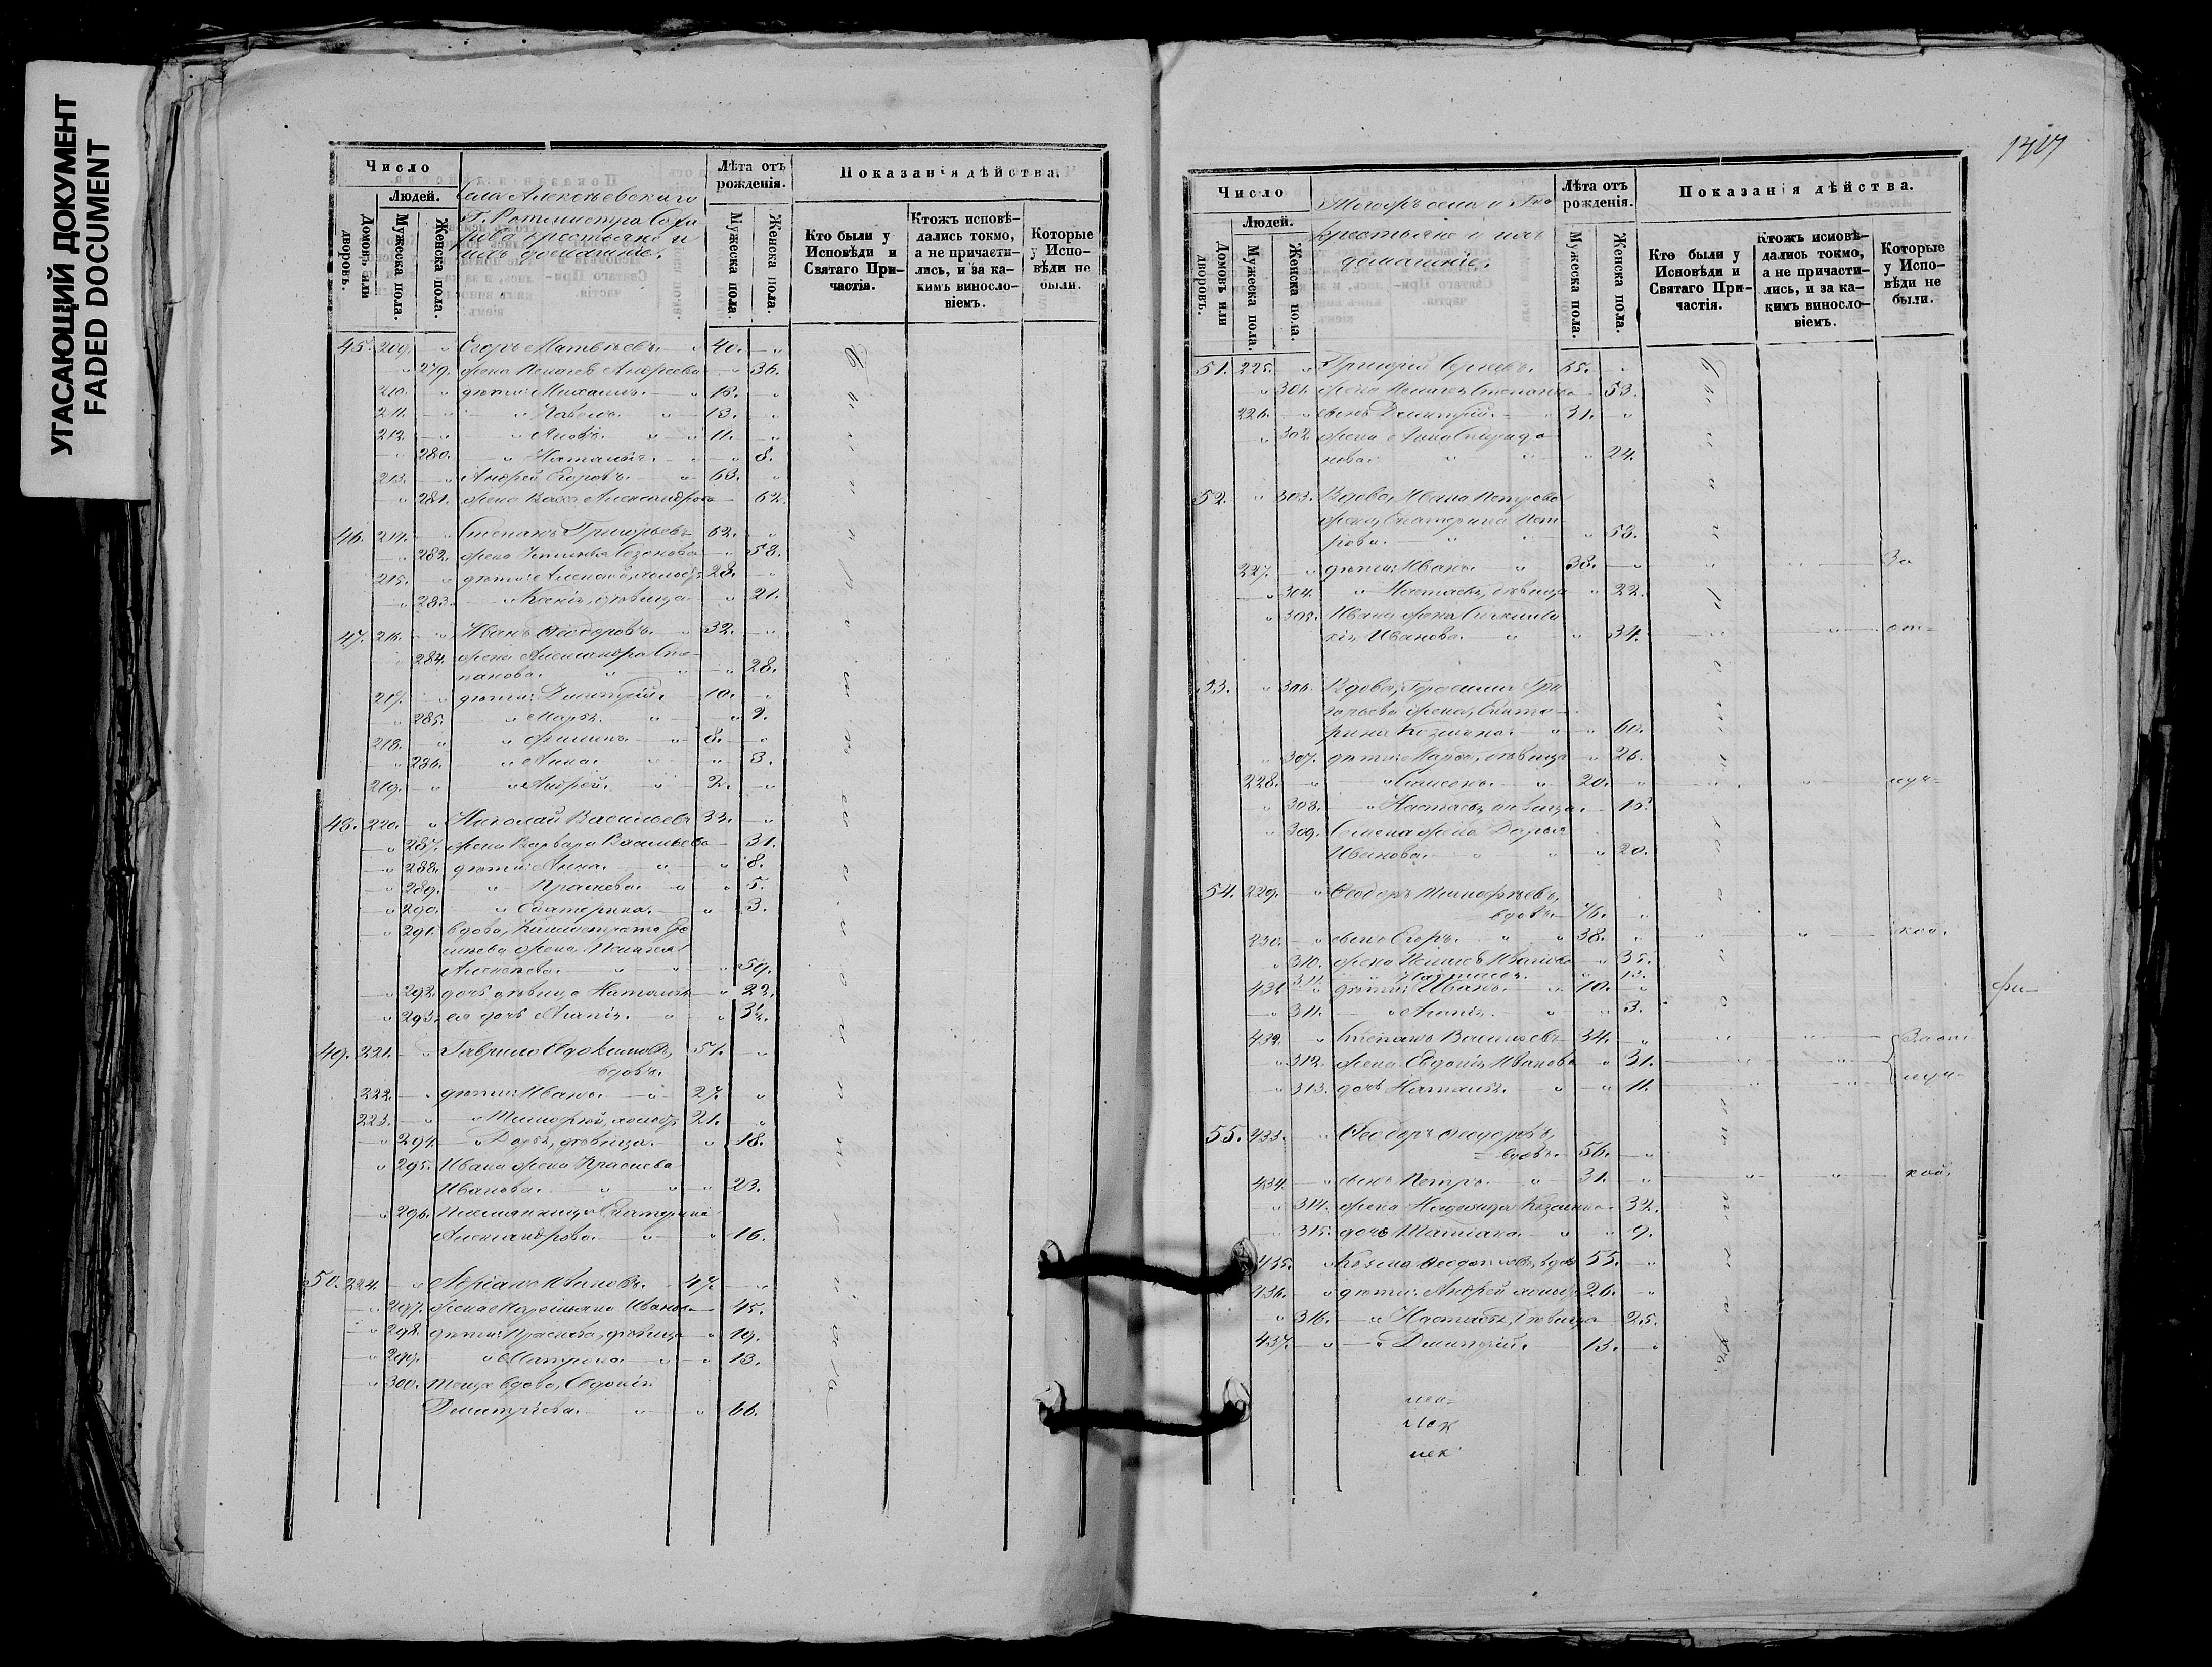 УГАСАЮЩИЙ ДОКУМЕНТ
FADED DOCUMENT
Число
Людей.
Домовъ или дворовъ.
Мужеска пола.
Женска пола.
Села Алексѣевскаго
Г. Ротмистра
крестьяне и
ихъ домашніе.
Лѣта отъ рожденія.
Мужеска пола.
Женска пола.
Показанія дѣйства.
Кто были у Исповѣди и Святаго При-частія.
Ктожъ исповѣ-дались токмо, а не причасти-лись, и за ка-кимъ виносло-віемъ.
Которые у Испо-вѣди не были.
45. 209. " Егоръ Матвѣевъ. " 40. "
" 279. жена Пелагея Андреева " 36.
210. " дѣти: Михаилъ. "
211. " " Павелъ. " 13. "
212. " " Яковъ. " " 11. "
" 280. " Наталья. " " 8.
213. " Андрей Егоровъ. " 63. "
" 281. жена Александрова 62.
46. 214. " Степанъ Григорьевъ 62. "
" 282. жена Созонова " 58.
215. " дѣти: Алексѣй, холостъ 28. "
" 283. " Ксенія, дѣвица " 21.
47. 216. " Иванъ Ѳеодоровъ. " 32. "
" 284. жена Александра Сте-
панова. " " 28.
217. " дѣти: Димитрій. 10. "
" 285. " Марѳа. " " 9.
218. " " Филипъ. " 8. "
" 286. " Анна. " " 3.
219. " " Андрей. " 2. "
48. 220. " Николай Васильевъ 33. "
" 287. жена Варвара Васильева 31.
" 288. дѣти: Анна. " " 8.
" 289. " Прасковья. " " 5.
" 290. " Екатерина. " 3.
" 291. вдова,
жена Пелагея
Алексѣева. " " " 59.
" 292. дочь дѣвица Наталья " 22.
" 293. ея дочь Агапія. " " 3½.
49. 221. " Гаврило Евдокимовъ, 51. "
вдовъ.
222. " дѣти: Иванъ. " 27. "
223. " " Тимофей, холостъ 21. "
" 294. " Дарья, дѣвица. " 18.
" 295. Ивана жена Прасковья
Иванова. " " " 23.
" 296. Племянница Екатерина
Александрова. " " 16.
50. 224. " Адріанъ Ивановъ. 47. "
" 297. жена Мареміяна Иванова 45.
" 298. дѣти: Прасковья, дѣвица " 19.
" 299. " Матрона. " " 13.
" 300. Теща вдова, Евдокія
Димитріева. " " 66.
1307
Число
Людей.
Домовъ или дворовъ.
Мужеска пола.
Женска пола.
Тогожъ села и
крестьяне и ихъ
домашніе.
Лѣта отъ рожденія.
Мужеска пола.
Женска пола.
Показанія дѣйства.
Кто были у Исповѣди и Святаго При-частія.
Ктожъ исповѣ-дались токмо, а не причасти-лись, и за ка-кимъ виносло-віемъ.
Которые у Испо-вѣди не были.
51. 225. " Григорій 65. "
" 301. жена Пелагея Степанова 53.
226. " сынъ Димитрій. " 31. "
" 302. жена Анна Спиридо-
нова. " " " 24.
52. " 303. Вдова, Ивана Петрова
жена, Екатерина Пет-
рова. " " 58.
227. " дѣти: Иванъ. " 38. " " " За
" 304. " Настасья, дѣвица " 22.
" 305. Ивана жена
Иванова. " " 34. " " от-
53. " 306. Вдова, Герасима Гри-
горьева жена, Екате-
рина Козмина. " " 60.
" 307. дѣти: Марѳа, дѣвица " 26.
228. " " Симеонъ. " 20. " " " луч-
" 308. " Настасья, дѣвица.
" 309. Семена жена Дарья
Иванова. " " " 20.
54. 229. " Ѳеодоръ Тимофѣевъ,
вдовъ. 76. "
230. " сынъ Егоръ. " " 38. " " " кой.
" 310. жена Пелагея Иванова " 35.
311. Наталья. " 13.
431. " дѣти: Иванъ. " 10. "
" 311. " Агапія. " " 3.
432. " Степанъ Васильевъ 34. " " " За от-
" 312. жена Евдокія Иванова " 31. " "
" 313. дочь Наталья. " " 11. " " луч-
55. 433. " Ѳеодоръ Ѳедоровъ,
вдовъ. 56. "
434. " сынъ Петръ. " 31. " " " кой.
" 314. жена Надежда Козмина 32.
" 315. дочь Татіана. " " 9.
435. " Козма Ѳеодоровъ, вдовъ 55. "
436. " дѣти: Андрей холостъ 26. "
" 316. " Настасья, дѣвица 25.
437. " " Димитрій. 13. "